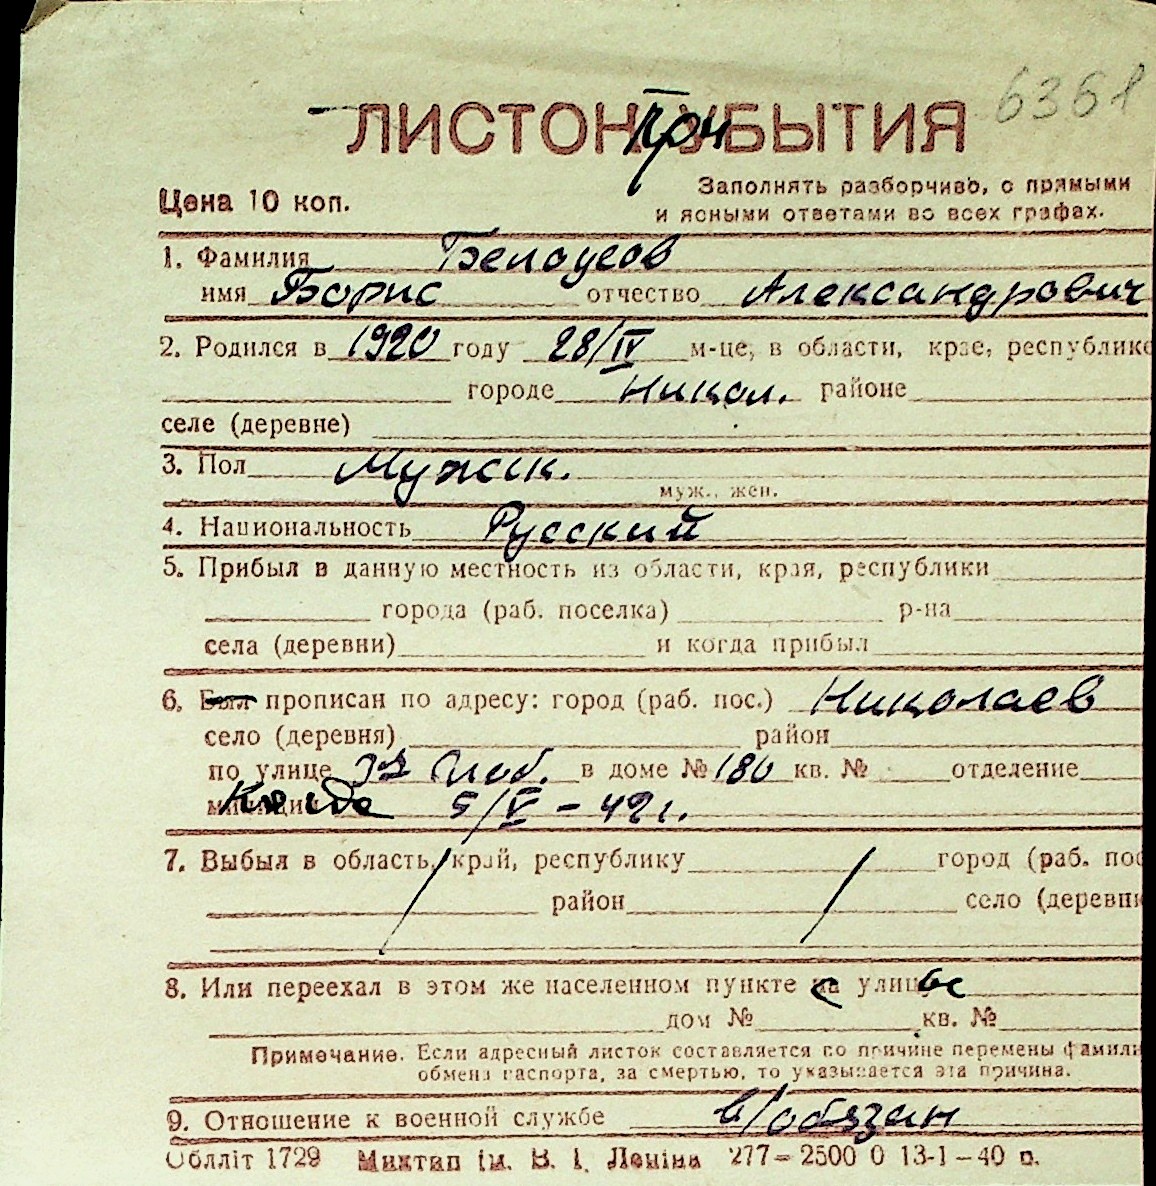 6361
ЛИСТОК УБЫТИЯ
При
Цена 10 коп.
Заполнять разборчиво, с прямыми
и ясными ответами во всех графах.
1. Фамилия Белоусов
имя Борис отчество Александрович
2. Родился в 1920 году 28/IV м-це, в области, крае, республике
городе Никол. районе
селе (деревне)
3. Пол Мужск.
муж., жен.
4. Национальность Русский
5. Прибыл в данную местность из области, края, республики
города (раб. поселка) р-на
села (деревни) и когда прибыл
6. Был прописан по адресу: город (раб. пос.) Николаев
село (деревня) район
по улице в доме № 180 кв. № отделение
милиции 5/V - 42 г.
7. Выбыл в область, край, республику город (раб. пос
район село (деревн
8. Или переехал в этом же населенном пункте с улицы
дом № кв. №
Примечание. Если адресный листок составляется по причине перемены фамили
обмена паспорта, за смертью, то указывается эта причина.
9. Отношение к военной службе в/обязан
Обллiт 1729 Миктап iм. В. I. Ленiна 277-2500 0 13-1-40 р.